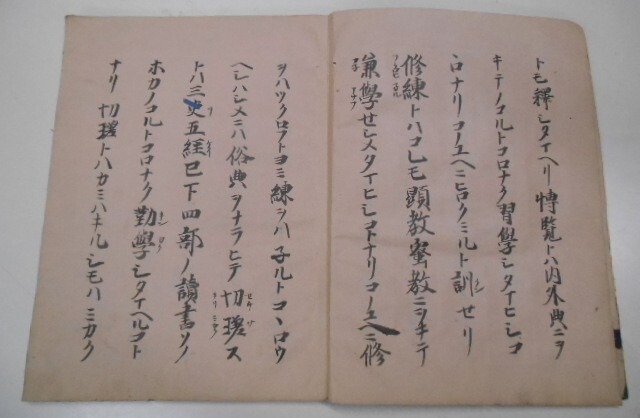 トモ釋シタマヘリ博覽トハ内外典ニヲ
キテノコルトコロナク習學シタマヒシコ
ロナリコノユヘニヒロクミルト訓セリ
修練トハコレモ顯教蜜教ニヲキテ
兼學セシメタマヒシコトナリコノユヘニ修
ヲハツクロフトヨミ練ヲハ子ルトコヽロウ
ヘシハシメニハ俗典ヲナラヒテ切瑳ス
トハ三史五經已下四部ノ讀書ソノ
ホカノコルトコロナク勤學シタマヘルコト
ナリ切瑳トハカミハキルシモハミカク